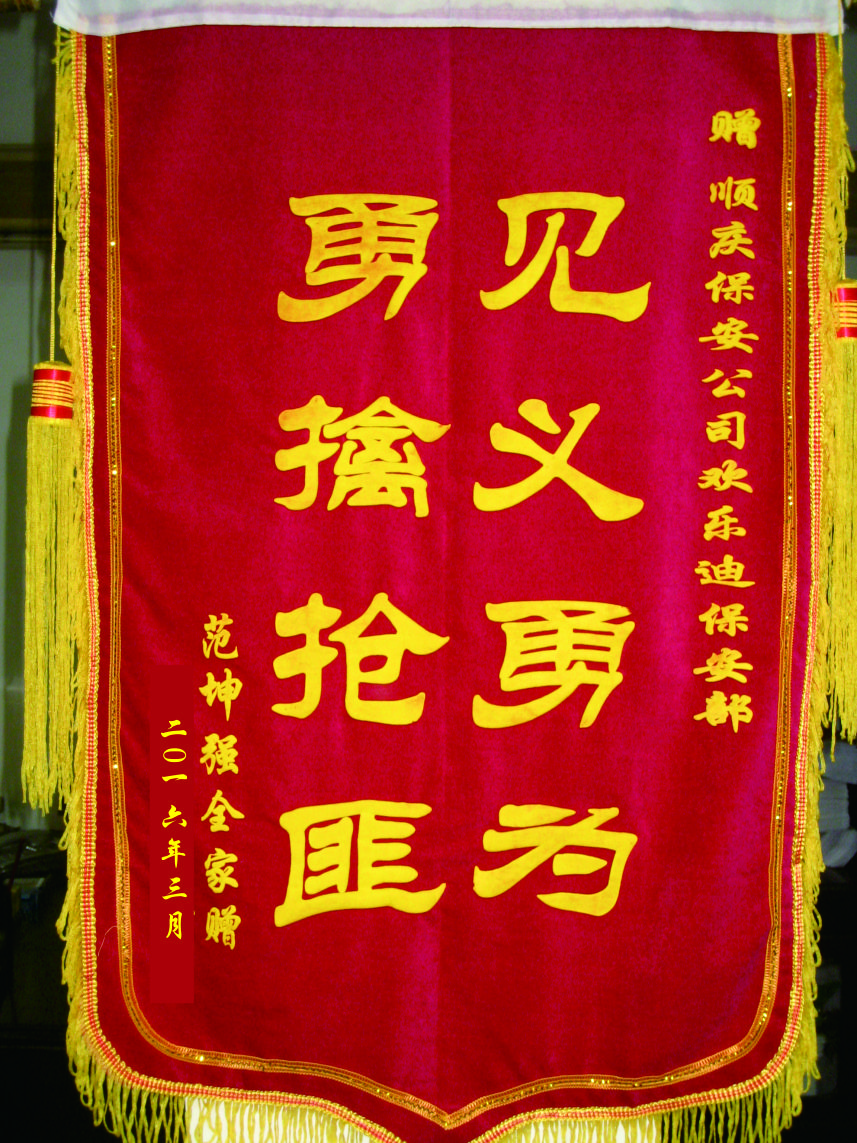 赠 顺庆保安公司欢乐迪保安部
见义勇为
勇擒抢匪
范坤强全家赠
二〇一六年三月